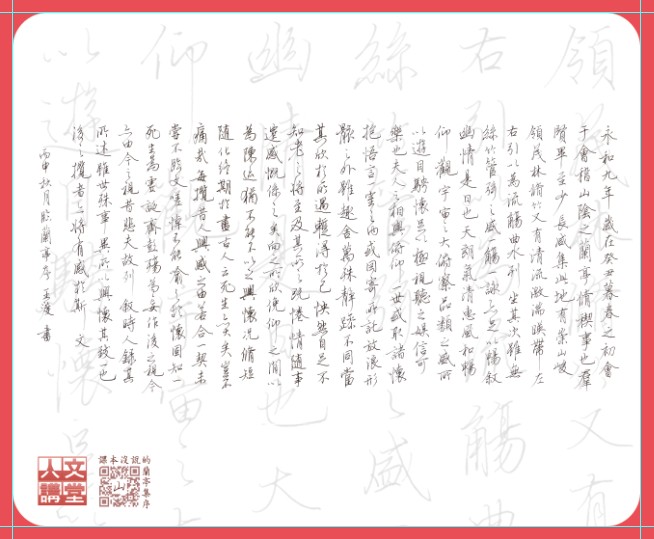 永和九年歲在癸丑暮春之初會
于會稽山陰之蘭亭脩禊事也羣
賢畢至少長咸集此地有崇山峻
領茂林脩竹又有清流激湍暎帶左
右引以為流觴曲水列坐其次雖無
絲竹管弦之盛一觴一詠亦足以暢敘
幽情是日也天朗氣清惠風和暢
仰觀宇宙之大俯察品類之盛所
以遊目騁懷足以極視聽之娛信可
樂也夫人之相與俯仰一世或取諸懷
抱悟言一室之內或因寄所託放浪形
骸之外雖趣舍萬殊靜躁不同當
其欣於所遇暫得於己怏然自足不
知老之將至及其所之既惓情隨事
遷感慨係之矣向之所欣俛仰之間以
為陳迹猶不能不以之興懷況脩短
隨化終期於盡古人云死生亦大矣豈不
痛哉每攬昔人興感之由若合一契未
嘗不臨文嗟悼不能喻之於懷固知一
死生為虛誕齊彭殤為妄作後之視今
亦由今之視昔悲夫故列敘時人錄其
所述雖世殊事異所以興懷其致一也
後之攬者亦將有感於斯文
丙申秋月臨蘭亭序 王書
領 又有
右 觴曲
絲 盛
幽 也大
仰
以遊目騁懷
文堂
人講
課本沒説的
蘭亭集序
山